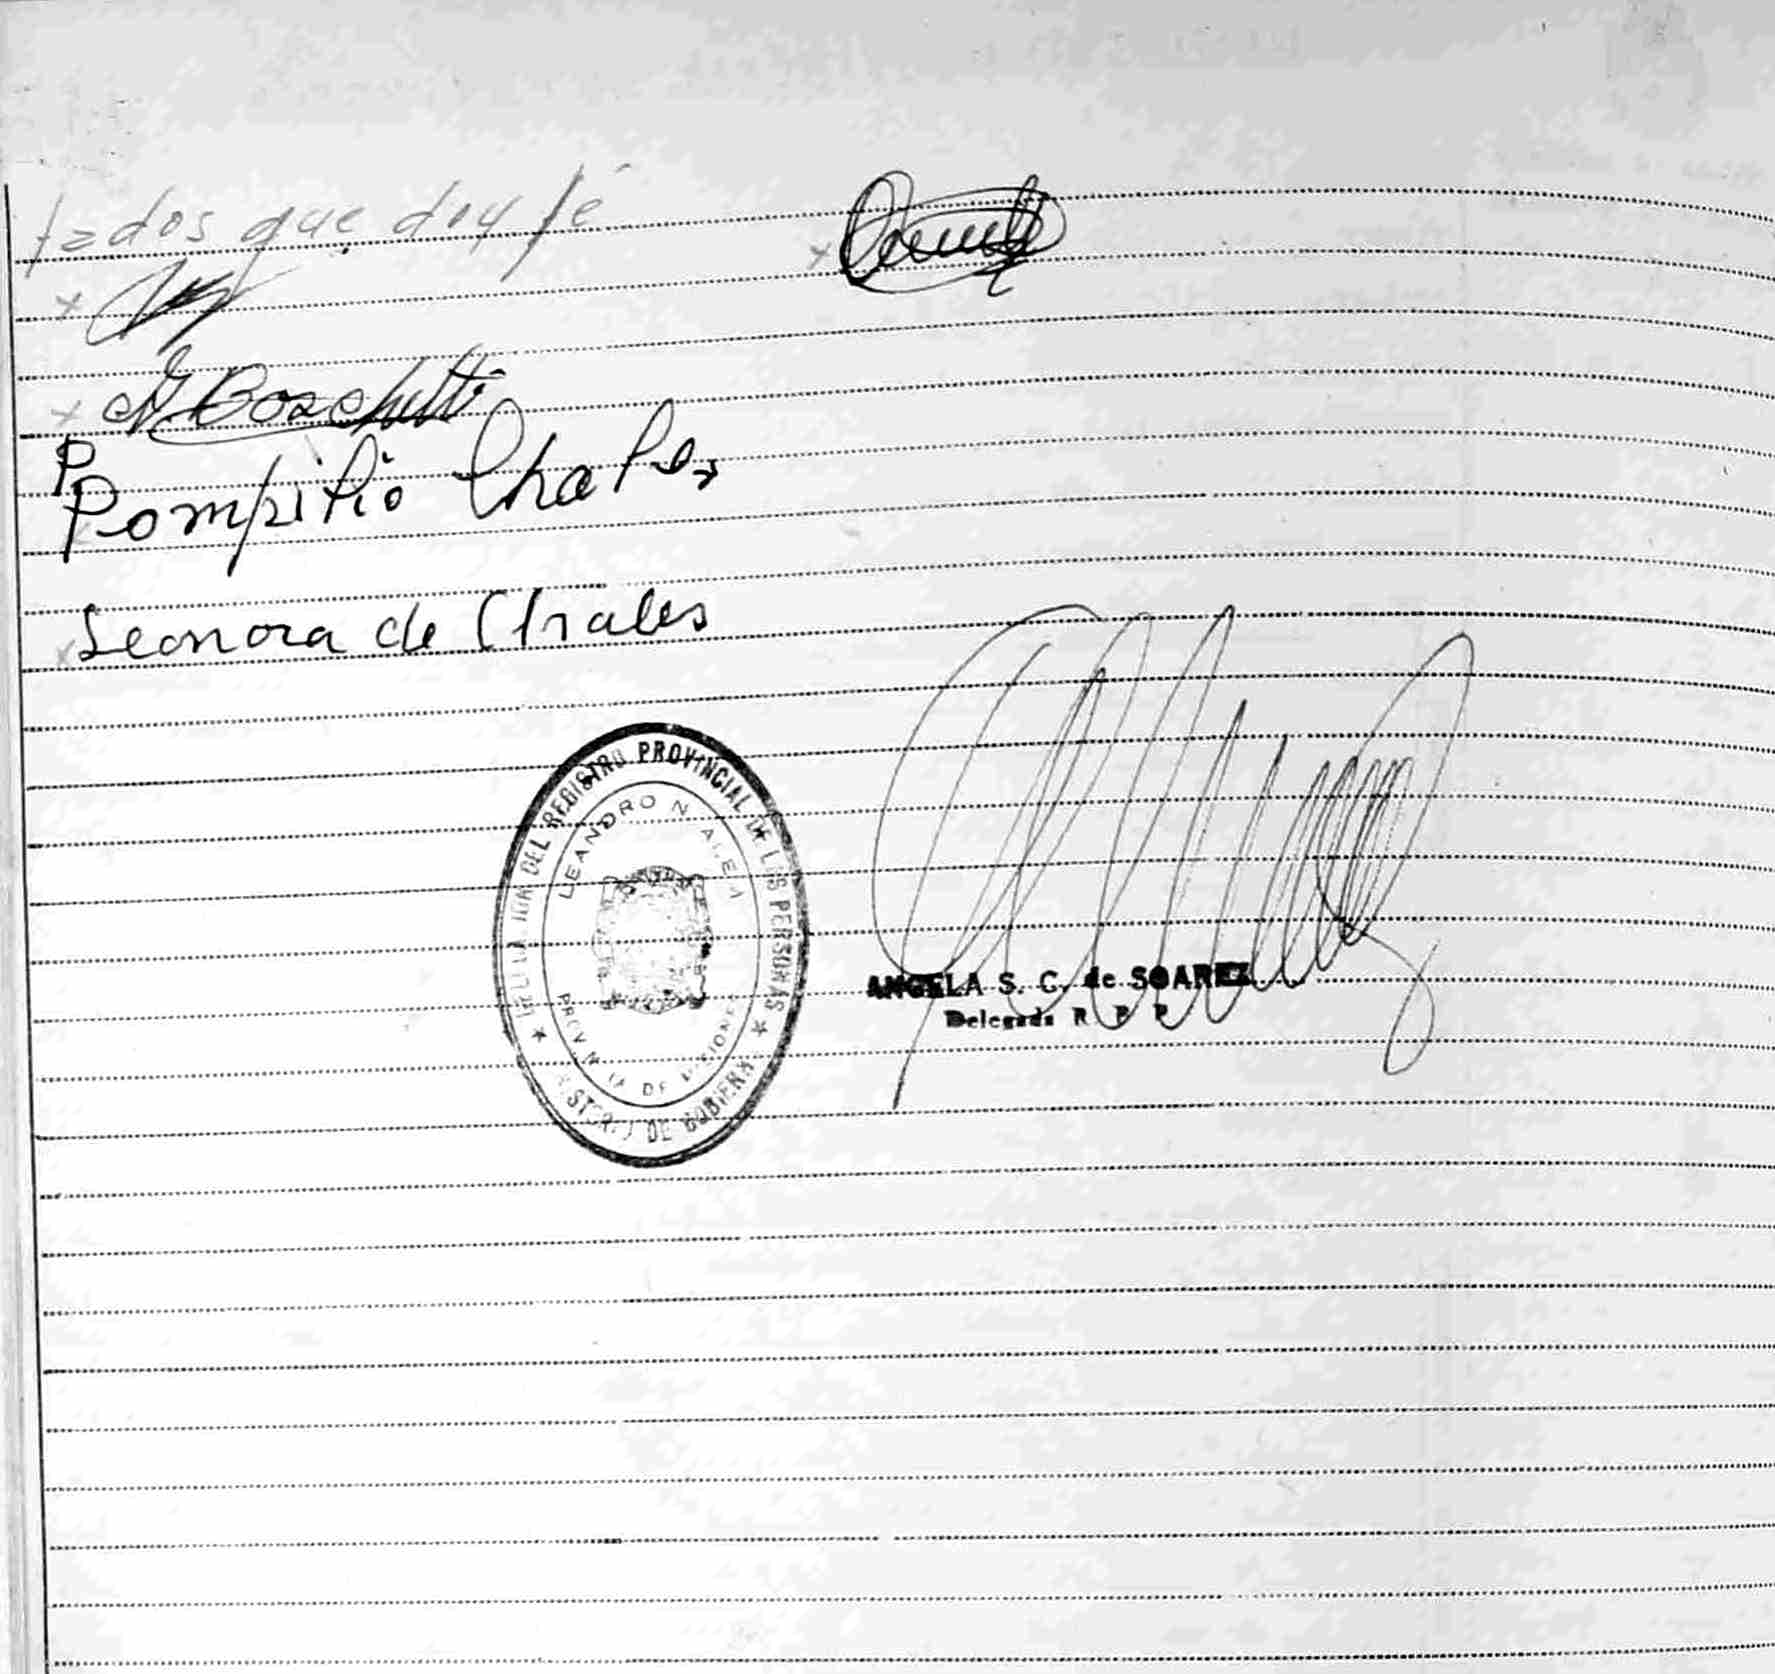 tados que doy fé
M Boschetti
P
Pompilio Chales
Leonora de Chales
DEL REGISTRO PROVINCIAL DE LAS PERSONAS
LEANDRO N. ALEM
PROVINCIA DE MISIONES
DE GOBIERN
ANGELA S. C. de SOAREZ
Delegada R P P